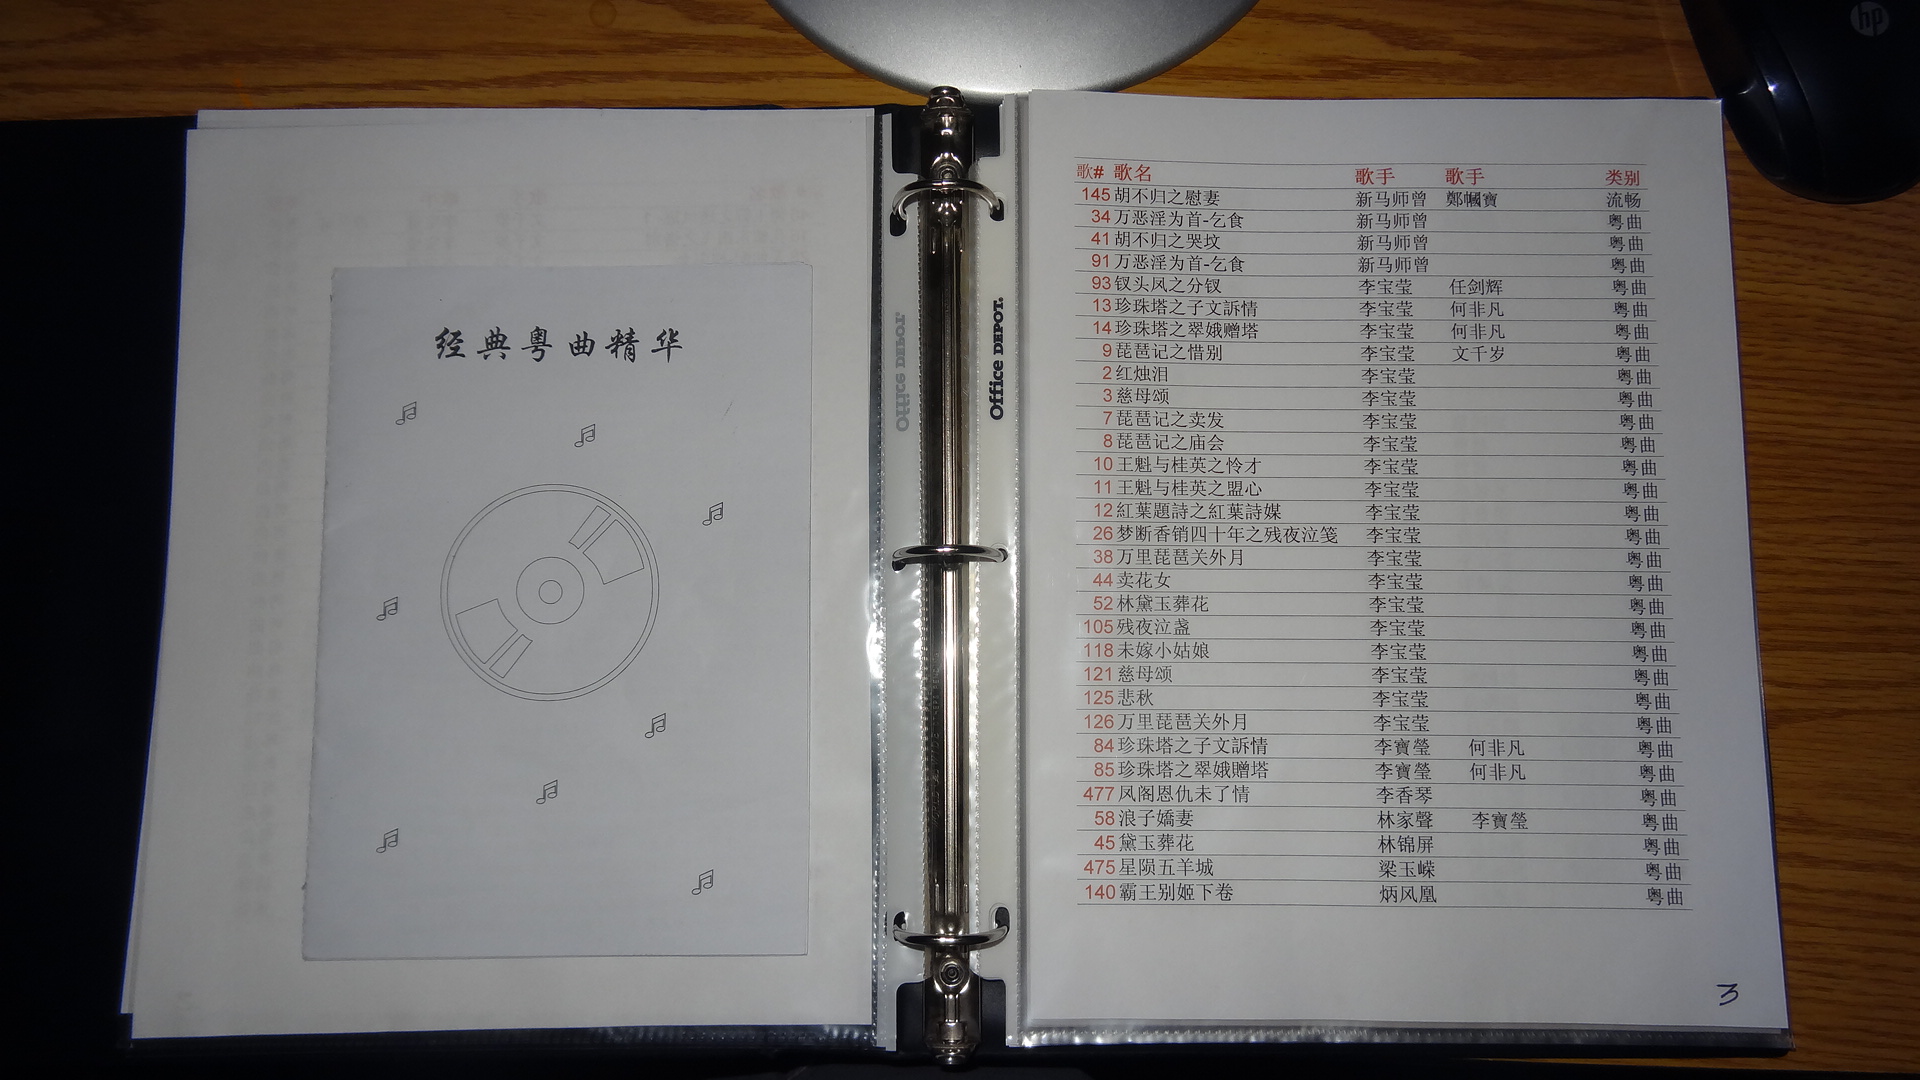 经典粤曲精华
Office DEPOT.
歌# 歌名 歌手 歌手 类别
145 胡不归之慰妻 新马师曾 鄭幗寶 流畅
34 万恶淫为首-乞食 新马师曾 粤曲
41 胡不归之哭坟 新马师曾 粤曲
91 万恶淫为首-乞食 新马师曾 粤曲
93 钗头凤之分钗 李宝莹 任剑辉 粤曲
13 珍珠塔之子文訴情 李宝莹 何非凡 粤曲
14 珍珠塔之翠娥赠塔 李宝莹 何非凡 粤曲
9 琵琶记之惜别 李宝莹 文千岁 粤曲
2 红烛泪 李宝莹 粤曲
3 慈母颂 李宝莹 粤曲
7 琵琶记之卖发 李宝莹 粤曲
8 琵琶记之庙会 李宝莹 粤曲
10 王魁与桂英之怜才 李宝莹 粤曲
11 王魁与桂英之盟心 李宝莹 粤曲
12 紅葉題詩之紅葉詩媒 李宝莹 粤曲
26 梦断香销四十年之残夜泣笺 李宝莹 粤曲
38 万里琵琶关外月 李宝莹 粤曲
44 卖花女 李宝莹 粤曲
52 林黛玉葬花 李宝莹 粤曲
105 残夜泣盏 李宝莹 粤曲
118 未嫁小姑娘 李宝莹 粤曲
121 慈母颂 李宝莹 粤曲
125 悲秋 李宝莹 粤曲
126 万里琵琶关外月 李宝莹 粤曲
84 珍珠塔之子文訴情 李寶瑩 何非凡 粤曲
85 珍珠塔之翠娥贈塔 李寶瑩 何非凡 粤曲
477 凤阁恩仇未了情 李香琴 粤曲
58 浪子嬌妻 林家聲 李寶瑩 粤曲
45 黛玉葬花 林锦屏 粤曲
475 星陨五羊城 梁玉嵘 粤曲
140 霸王别姬下卷 炳凤凰 粤曲
3
hp